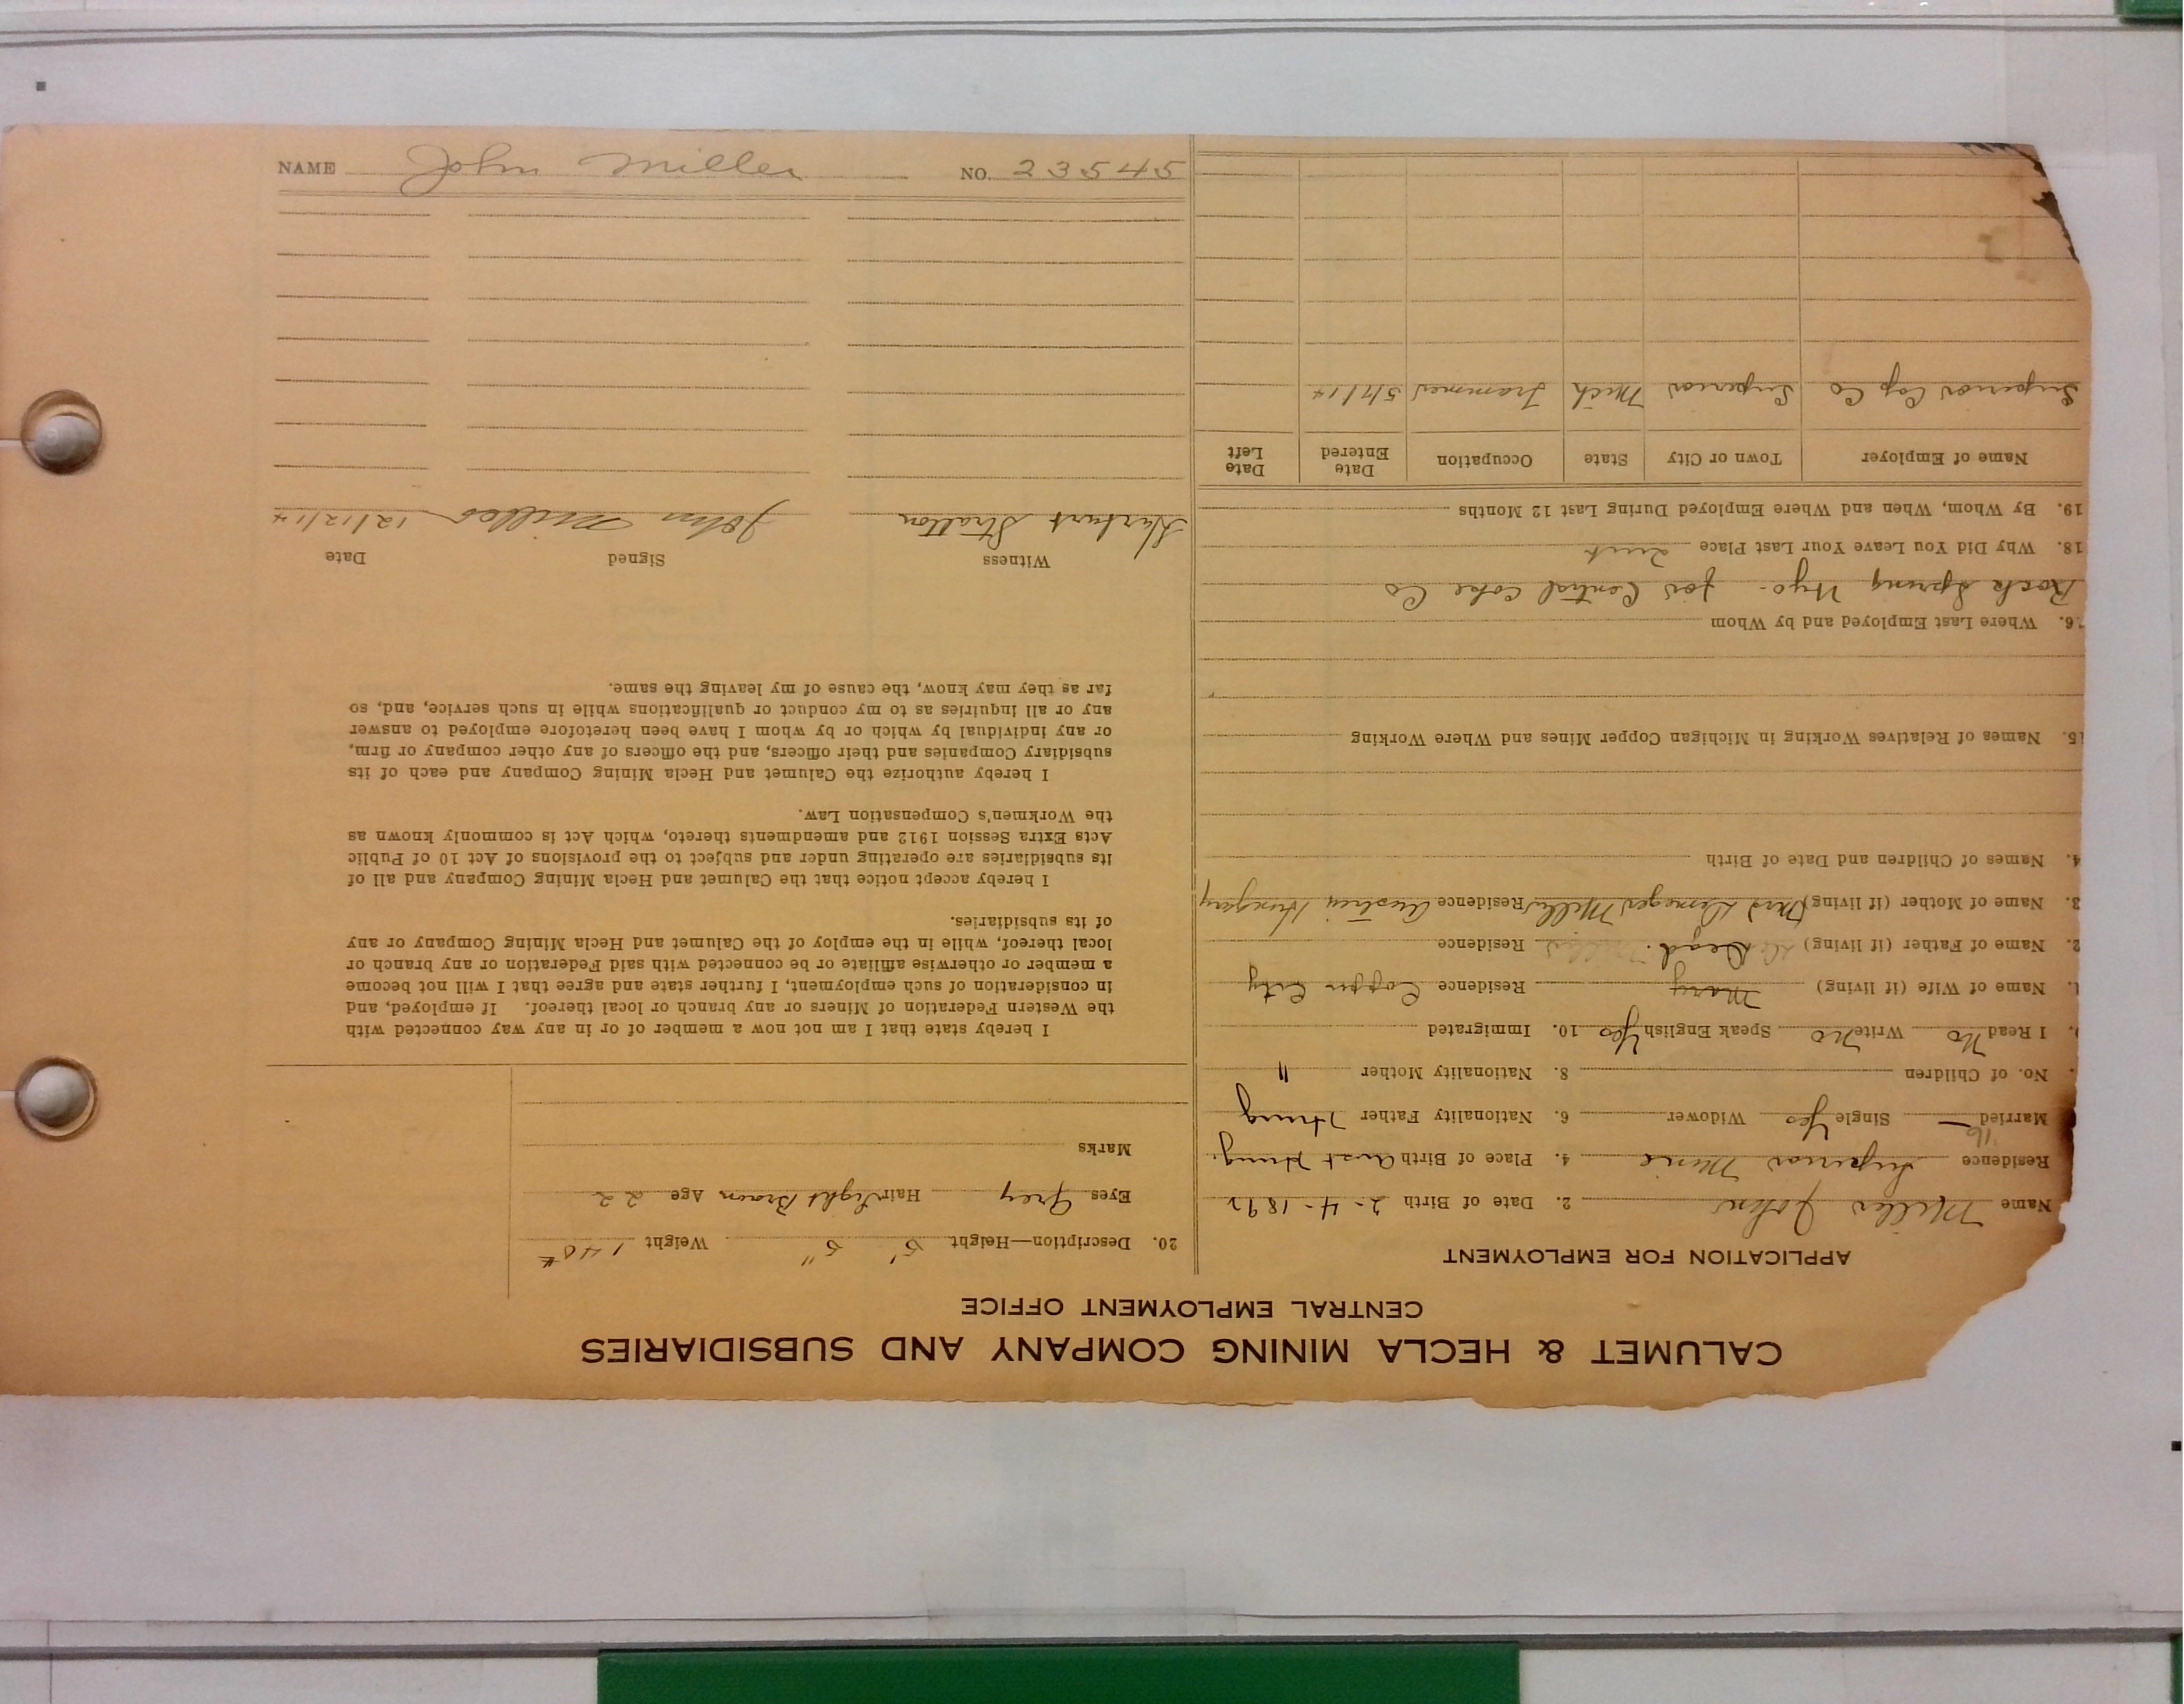 CALUMET & HECLA MINING COMPANY AND SUBSIDIARIES
CENTRAL EMPLOYMENT OFFICE
APPLICATION FOR EMPLOYMENT
Name Miller John 2. Date of Birth 2-4-1892
Residence Superior Mine 4. Place of Birth Aust Hung.
Married — Single Yes Widower 6. Nationality Father Hung
No. of Children 8. Nationality Mother "
I Read No Write No Speak English Yes 10. Immigrated
1. Name of Wife (if living) Mary Residence Copper City
2. Name of Father (if living) Dead. Residence
3. Name of Mother (if living) Mrs Miller Residence Austria Hungary
4. Names of Children and Date of Birth
15. Names of Relatives Working in Michigan Copper Mines and Where Working
16. Where Last Employed and by Whom
Rock Spring Wyo. for Central Coke Co
18. Why Did You Leave Your Last Place Quit
19. By Whom, When and Where Employed During Last 12 Months
Name of Employer Town or City State Occupation Date Entered Date Left
Superior Cop Co Superior Mich Trammer 5/7/14
20. Description—Height 5' 5" Weight 140#
Eyes Grey Hair Light Brown Age 22
Marks
I hereby state that I am not now a member of or in any way connected with
the Western Federation of Miners or any branch or local thereof. If employed, and
in consideration of such employment, I further state and agree that I will not become
a member or otherwise affiliate or be connected with said Federation or any branch or
local thereof, while in the employ of the Calumet and Hecla Mining Company or any
of its subsidiaries.
I hereby accept notice that the Calumet and Hecla Mining Company and all of
its subsidiaries are operating under and subject to the provisions of Act 10 of Public
Acts Extra Session 1912 and amendments thereto, which Act is commonly known as
the Workmen's Compensation Law.
I hereby authorize the Calumet and Hecla Mining Company and each of its
subsidiary Companies and their officers, and the officers of any other company or firm,
or any individual by which or by whom I have been heretofore employed to answer
any or all inquiries as to my conduct or qualifications while in such service, and, so
far as they may know, the cause of my leaving the same.
Witness Signed Date
Herbert Stratton John Miller 12/12/14
NAME John Miller NO. 23545